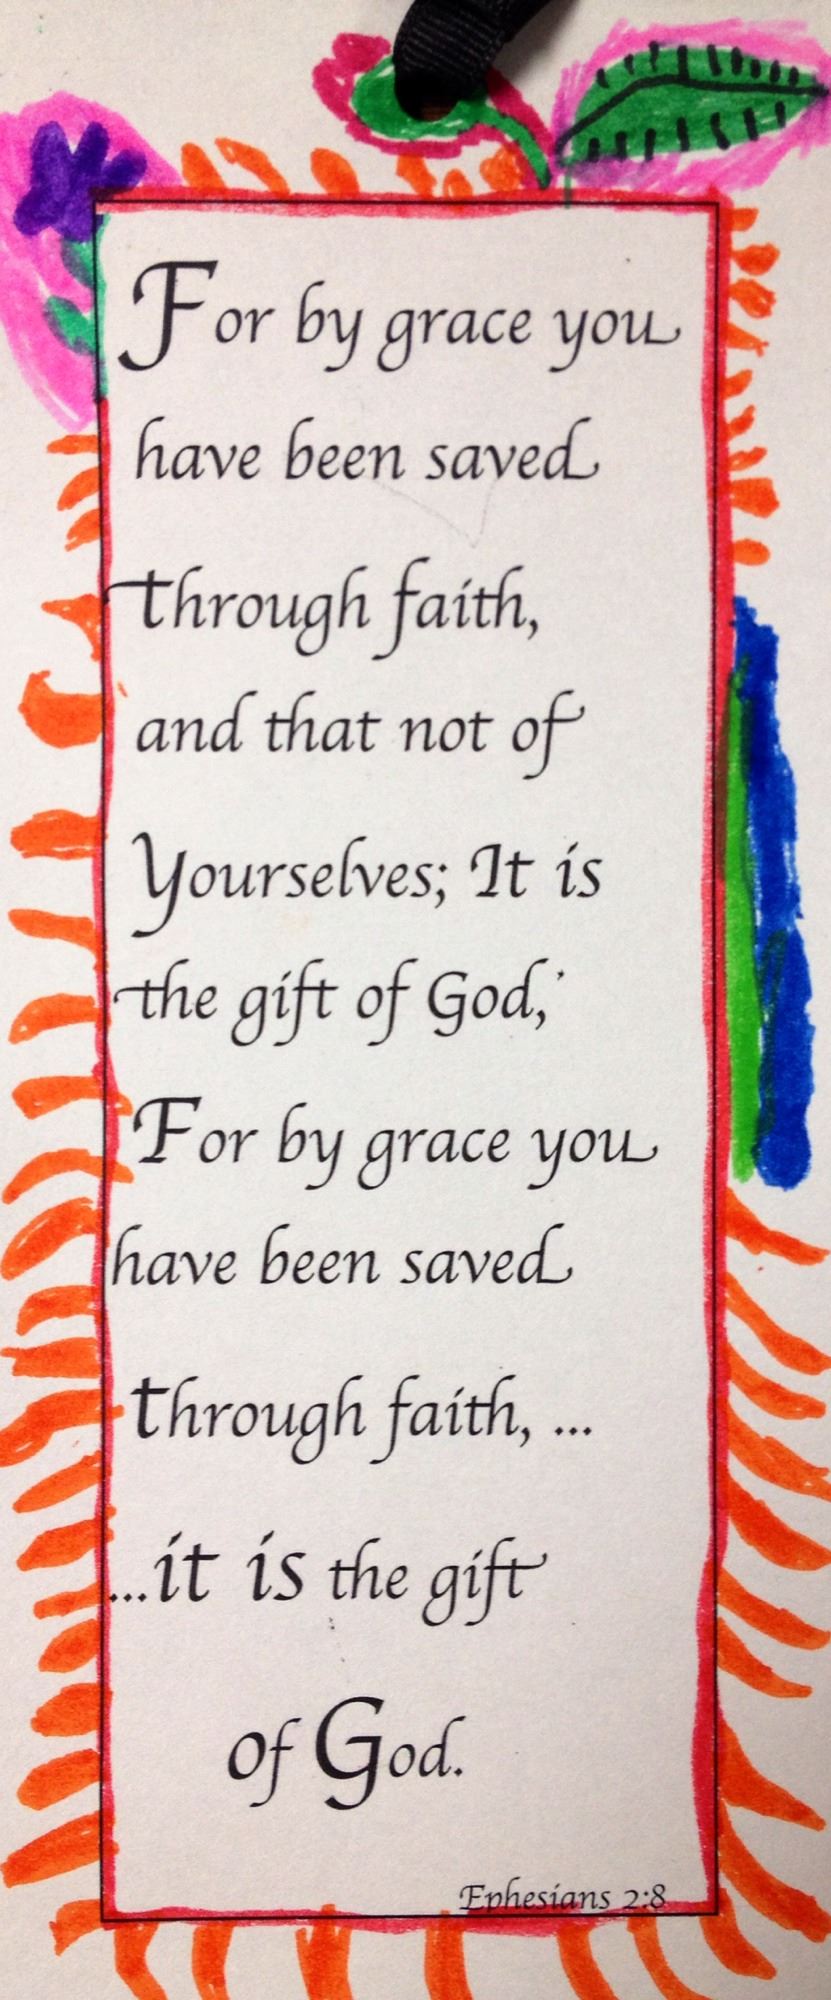 For by grace you
have been saved
through faith,
and that not of
Yourselves; It is
the gift of God,'
For by grace you
have been saved
through faith, ...
...it is the gift
of God.
Ephesians 2:8